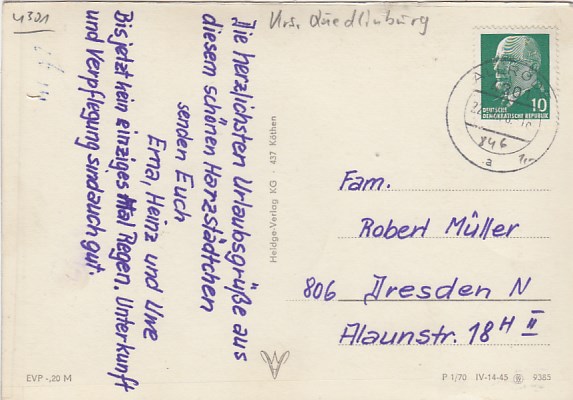 4301
Krs. Quedlinburg
Die herzlichsten Urlaubsgrüße aus
diesem schönen Harzstädtchen
senden Euch
Erna, Heinz und Uwe
Bis jetzt kein einziges Mal Regen. Unterkunft
und Verpflegung sind auch gut.
Heldge-Verlag KG · 437 Köthen
10
DEUTSCHE
DEMOKRATISCHE REPUBLIK
a
Fam.
Robert Müller
806 Dresden N
Alaunstr. 18 H II
EVP -,20 M
P 1/70 IV-14-45 9385